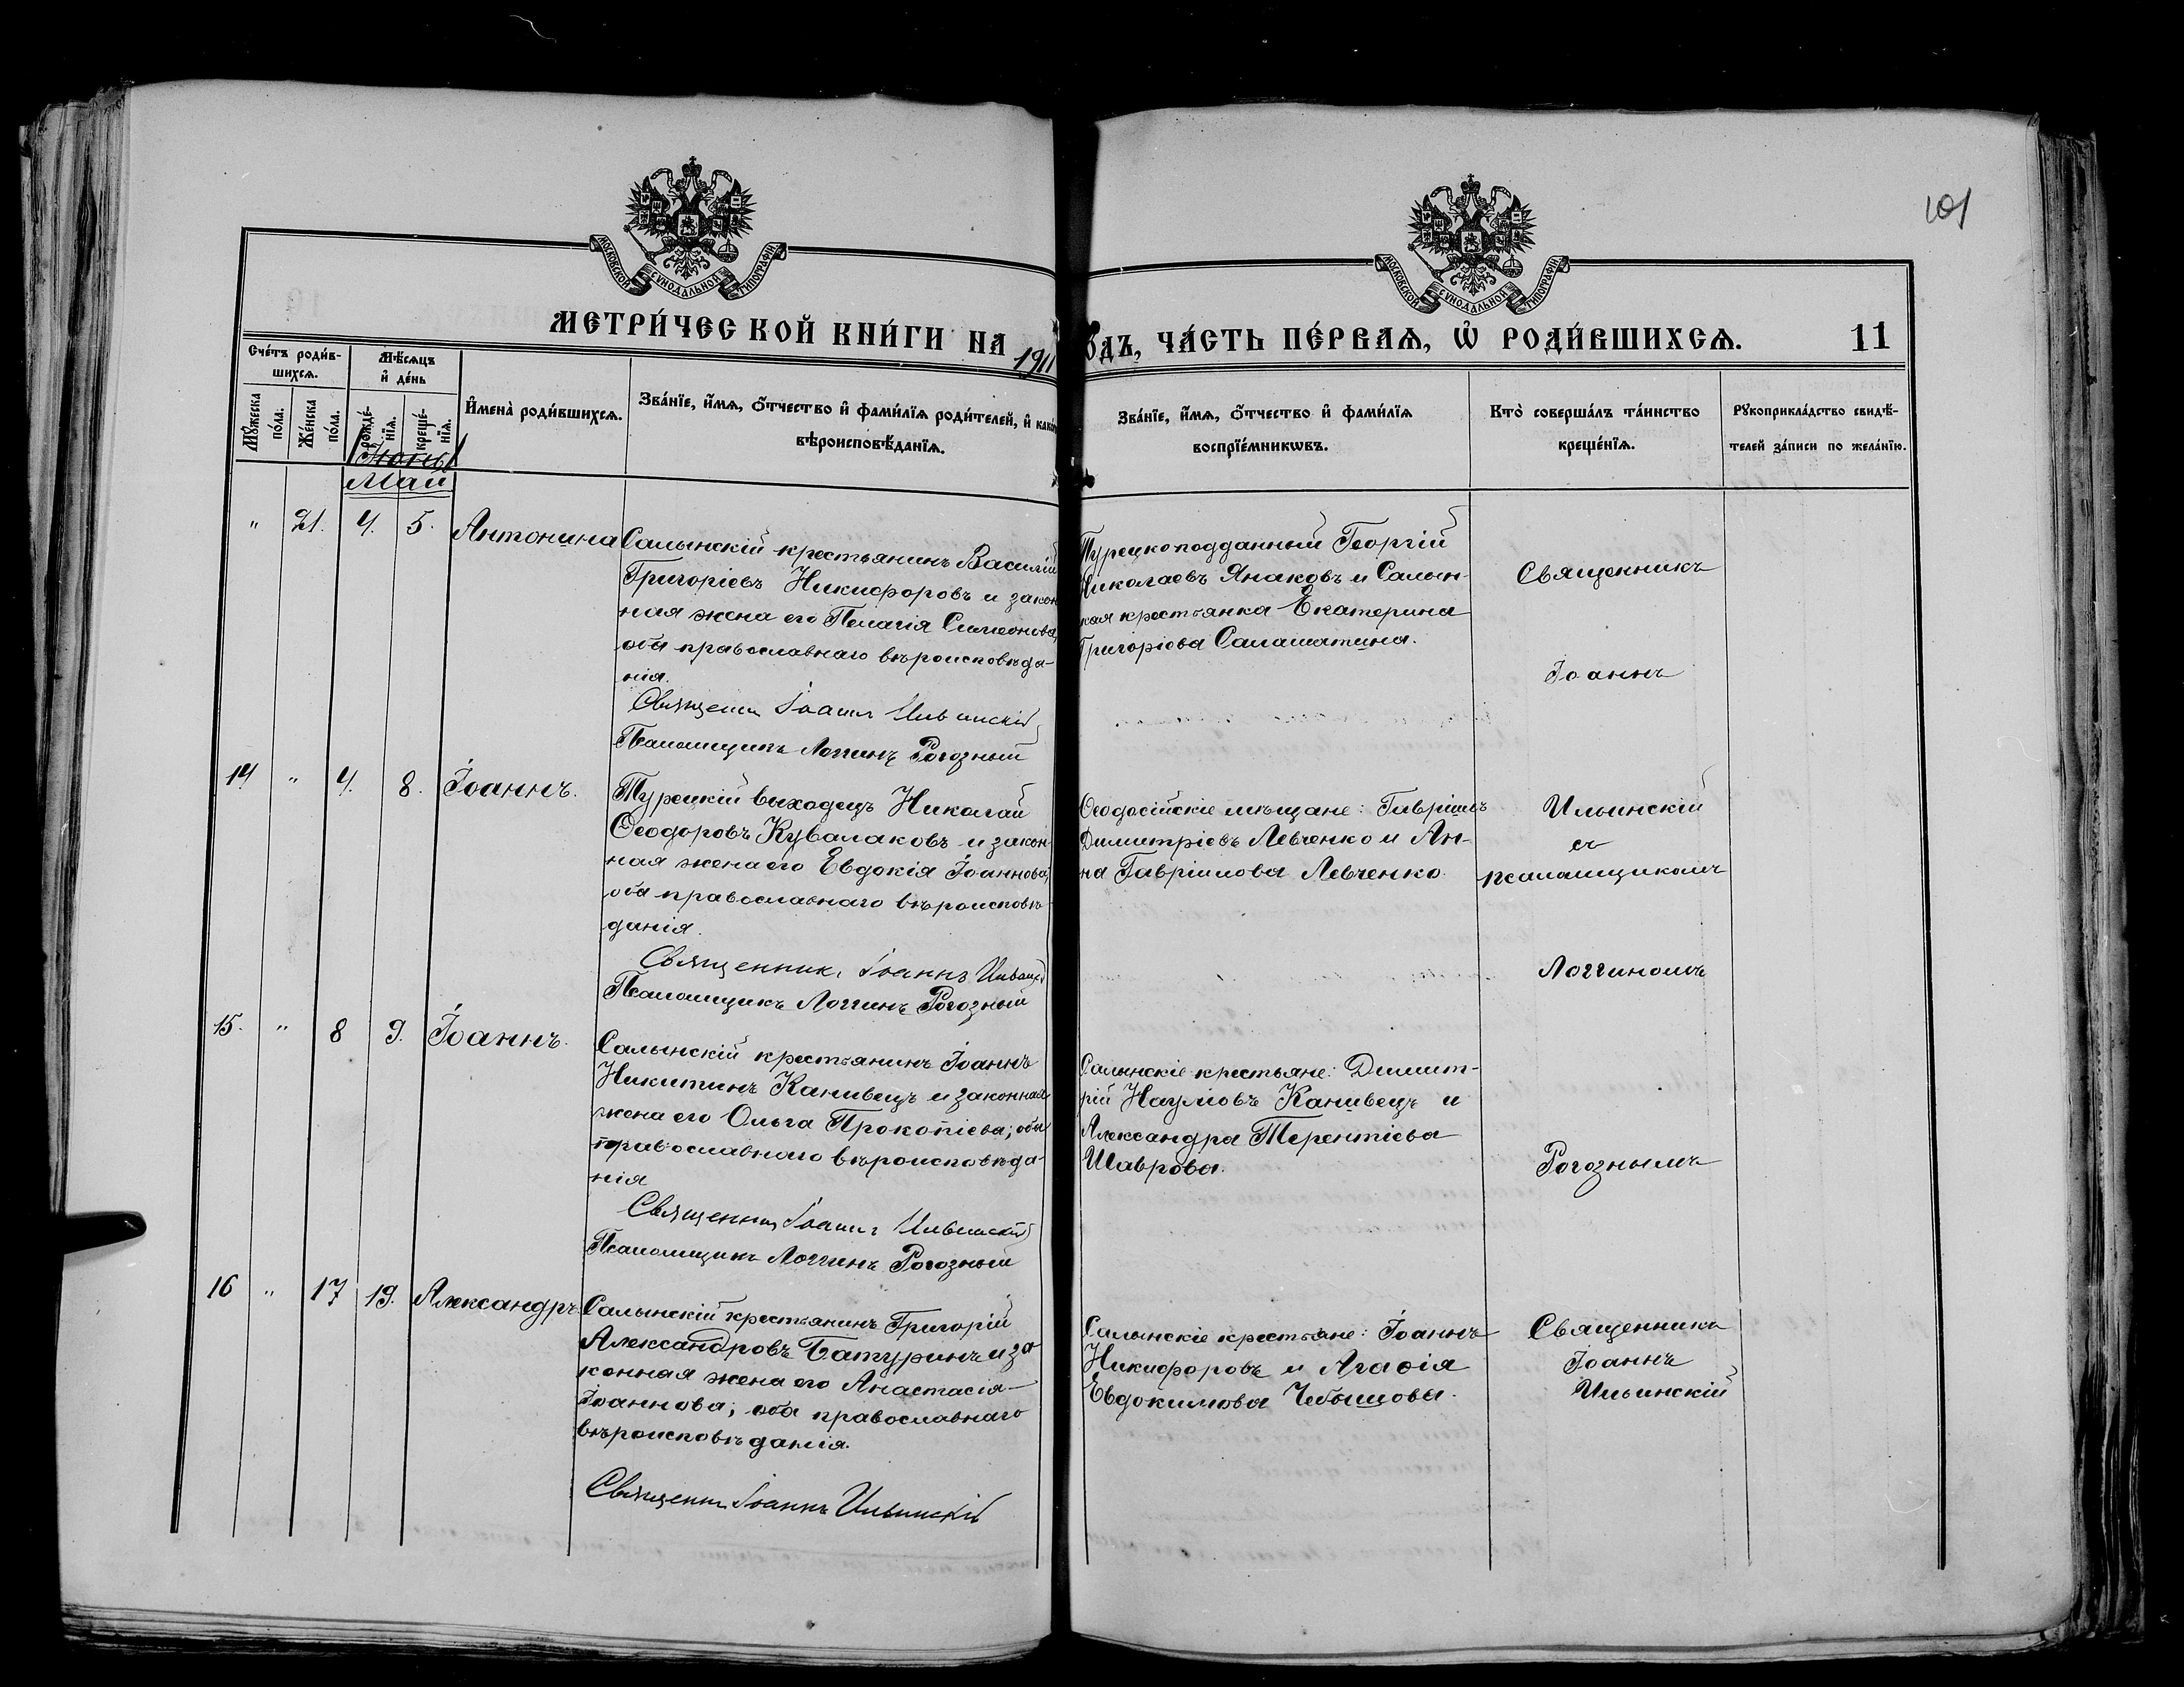 101
МОСКОВСКОЙ СѴНОДАЛЬНОЙ ТИПОГРАФІИ
МОСКОВСКОЙ СѴНОДАЛЬНОЙ ТИПОГРАФІИ
МЕТРИ́ЧЕСКОЙ КНИ́ГИ НА 1911
ОДЪ, ЧА́СТЬ ПЕ́РВАѦ, Ѽ РОДИ́ВШИХСѦ.
11
Сче́тъ роди́в-
шихсѧ.
Мѣ́сѧцъ
и҆ де́нь
Мꙋ́жеска
по́ла.
Же́нска
по́ла.
рожде́-
нїѧ.
креще́-
нїѧ.
И҆мена̀ роди́вшихсѧ.
Зва́нїе, и҆́мѧ, ѻ҆́тчество и҆ фами́лїѧ роди́телей, и҆ како
вѣроисповѣ́данїѧ.
Зва́нїе, и҆́мѧ, ѻ҆́тчество и҆ фами́лїѧ
воспрїе́мникѡвъ.
Кто̀ соверша́лъ та́инство
креще́нїѧ.
Рꙋкоприкла́дство свидѣ́-
телей за́писи по жела́нїю.
Май
" 21. 4. 5. Антонина
Салынскій крестьянинъ Василій
Григоріевъ Никифоровъ и закон
ная жена его Пелагія Симеонова,
оба православнаго вѣроисповѣда-
нія.
Священн Іоаннъ Ильинскій
Псаломщикъ Логгинъ Рогозный
Турецкоподданный Георгій
Николаевъ Янаковъ и Салын-
кая крестьянка Екатерина
Григоріева Салашатина.
Священникъ
Іоаннъ
14 " 4. 8. Іоаннъ.
Турецкій выходецъ Николай
Ѳеодоровъ Кувалаковъ и закон
ная жена его Евдокія Іоаннова,
оба православнаго вѣроисповѣ-
данія.
Священник Іоаннъ Ильинск
Псаломщикъ Логгинъ Рогозный
Ѳеодосійскіе мѣщане: Гавріилъ
Димитріевъ Левченко и Ан-
на Гавріилова Левченко
Ильинскій
съ
псаломщикомъ
Логгиномъ
15. " 8 9. Іоаннъ.
Салынскій крестьянинъ Іоаннъ
Никитинъ Канивецъ и законная
жена его Ольга Прокопіева; оба
православнаго вѣроисповѣда-
нія
Священник Іоаннъ Ильинскій
Псаломщикъ Логгинъ Рогозный
Салынскіе крестьяне: Димит-
рій Наумовъ Канивецъ и
Александра Терентіева
Шаврова.
Рогознымъ
16 " 17 19. Александръ
Салынскій крестьянинъ Григорій
Александровъ Батуринъ и за
конная жена его Анастасія
Іоаннова; оба православнаго
вѣроисповѣданія.
Священник Іоаннъ Ильинскій
Салынскіе крестьяне: Іоаннъ
Никифоровъ и Агаѳія
Евдокимова Чебышова.
Священникъ
Іоаннъ
Ильинскій